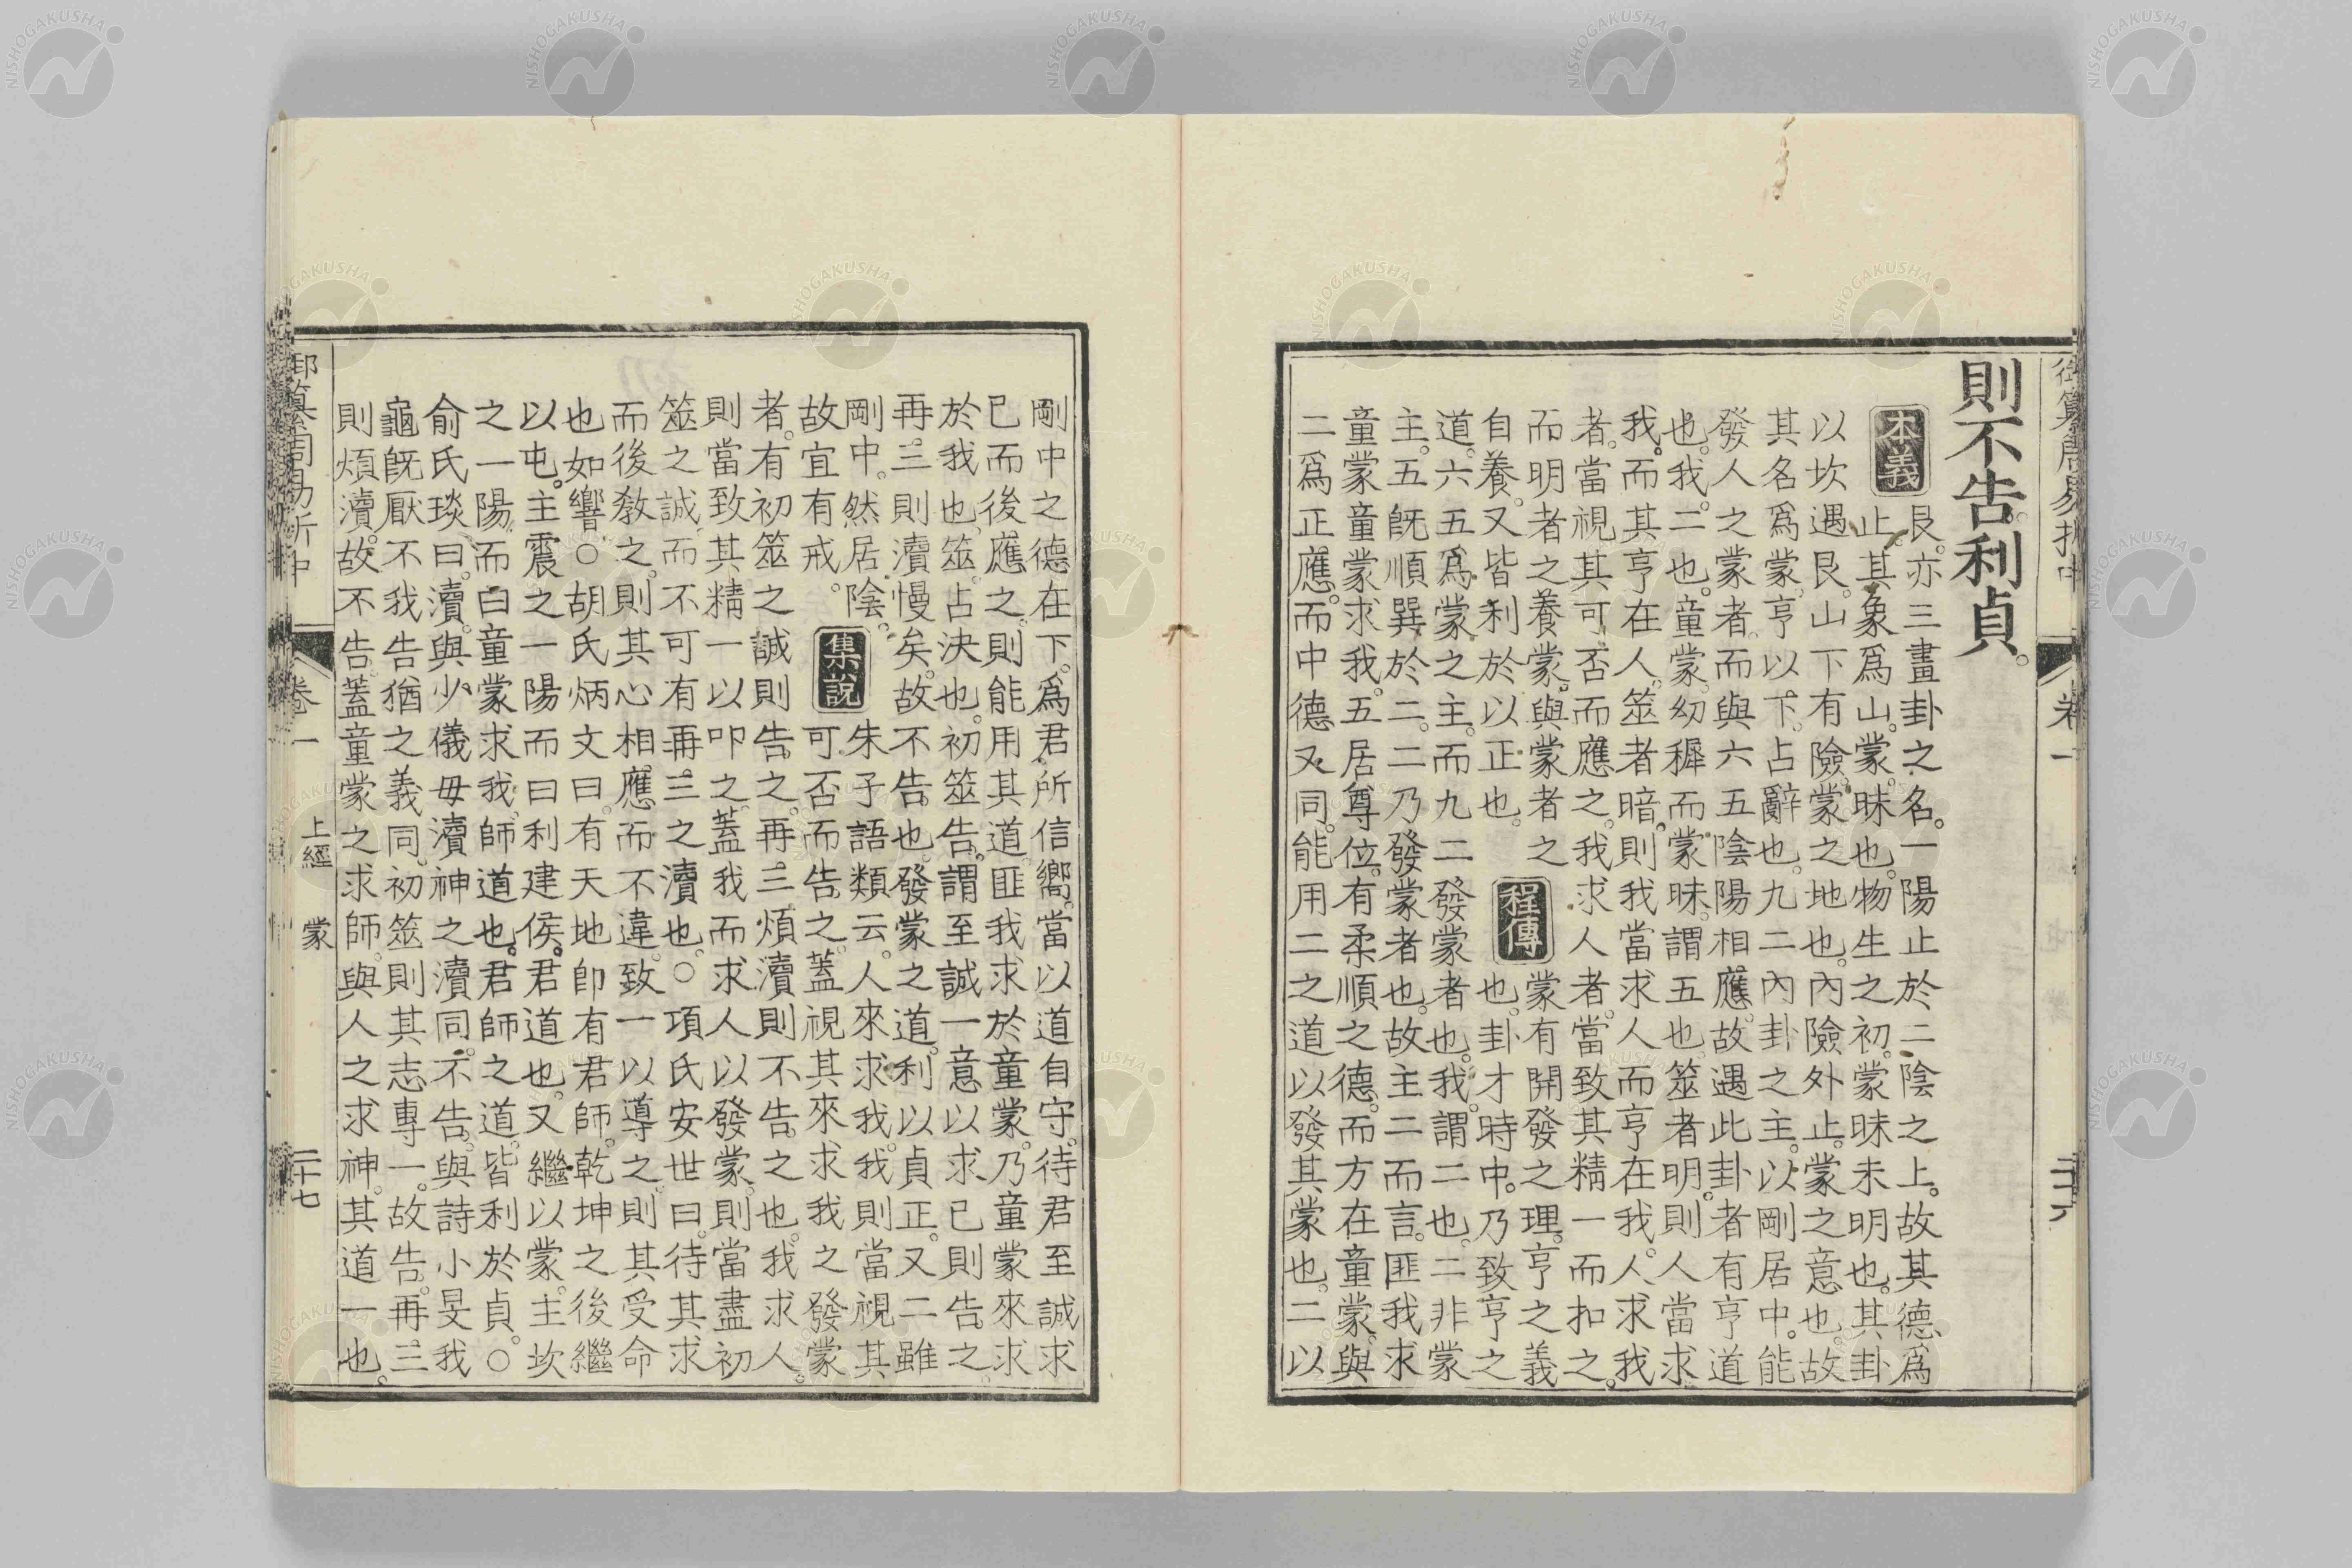 御纂周易折中
卷一
二十六
則不告利貞。
本義
艮。亦三畫卦之名。一陽止於二陰之上。故其德爲
止。其象爲山。蒙。昧也。物生之初。蒙昧未明也。其卦
以坎遇艮。山下有險。蒙之地也。內險外止。蒙之意也。故
其名爲蒙。亨以下。占辭也。九二內卦之主。以剛居中。能
發人之蒙者。而與六五陰陽相應。故遇此卦者有亨道
也。我。二也。童蒙。幼穉而蒙昧。謂五也。筮者明。則人當求
我。而其亨在人。筮者暗。則我當求人而亨在我。人求我
者。當視其可否而應之。我求人者。當致其精一而扣之。
而明者之養蒙。與蒙者之
自養。又皆利於以正也。
程傳
蒙有開發之理。亨之義
也。卦才時中。乃致亨之
道。六五爲蒙之主。而九二發蒙者也。我。謂二也。二非蒙
主。五旣順巽於二。二乃發蒙者也。故主二而言。匪我求
童蒙童蒙求我。五居尊位。有柔順之德。而方在童蒙。與
二爲正應。而中德又同。能用二之道以發其蒙也。二以
剛中之德在下。爲君所信嚮。當以道自守。待君至誠求
已而後應之。則能用其道。匪我求於童蒙。乃童蒙來求
於我也。筮。占決也。初筮告。謂至誠一意以求已則告之。
再三則瀆慢矣。故不告也。發蒙之道。利以貞正。又二雖
剛中。然居陰。
故宜有戒。
集說
朱子語類云。人來求我。我則當視其
可否而告之。蓋視其來求我之發蒙
者。有初筮之誠則告之。再三煩瀆則不告之也。我求人。
則當致其精一以叩之。蓋我而求人以發蒙。則當盡初
筮之誠。而不可有再三之瀆也。○項氏安世曰。待其求
而後敎之。則其心相應而不違。致一以導之。則其受命
也如響○胡氏炳文曰。有天地卽有君師。乾坤之後繼
以屯。主震之一陽而曰利建侯。君道也。又繼以蒙。主坎
之一陽而曰童蒙求我。師道也。君師之道。皆利於貞。○
俞氏琰曰。瀆。與少儀毋瀆神之瀆同。不告。與詩小旻我
龜旣厭不我告猶之義同。初筮則其志專一。故告。再三
則煩瀆。故不告。蓋童蒙之求師。與人之求神。其道一也。
御纂周易折中
卷一
上經
蒙
二十七